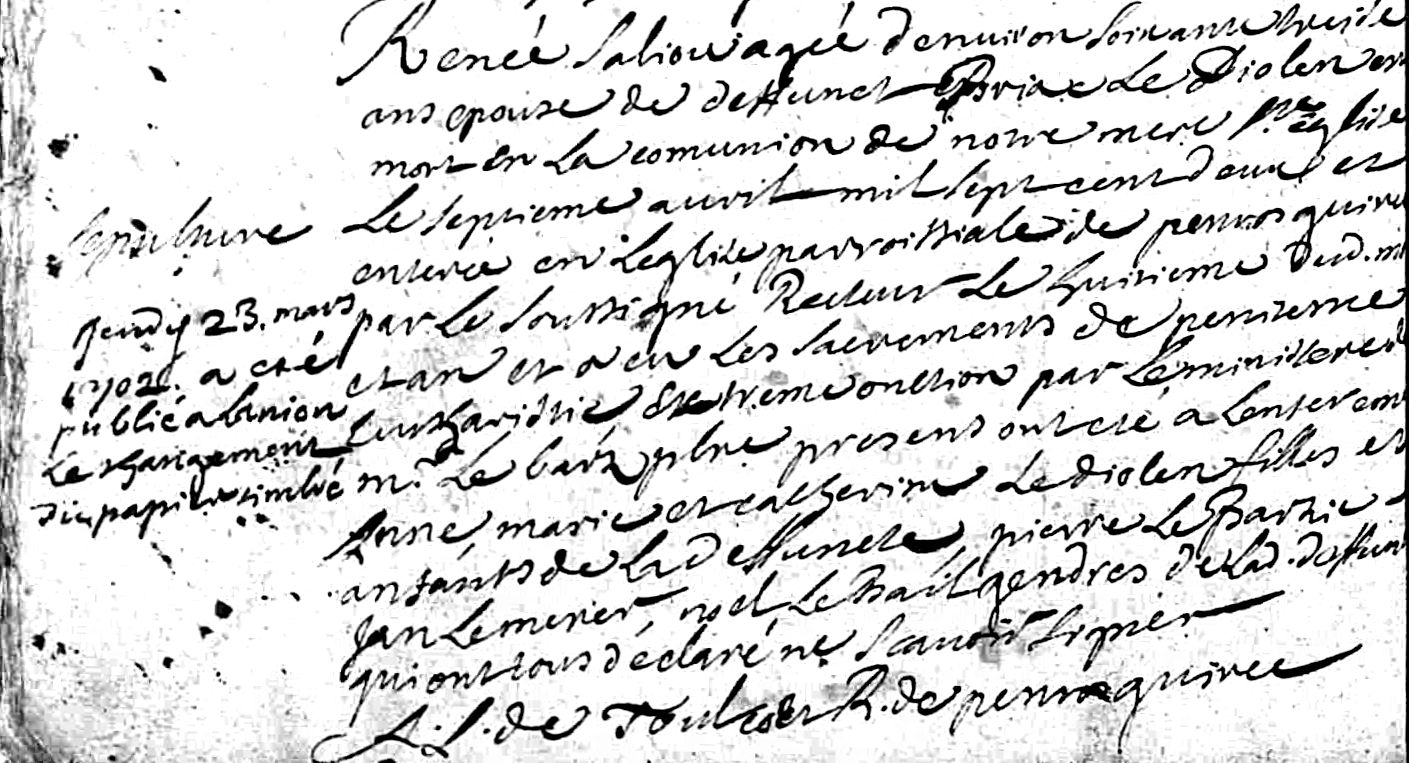 Renée Saliou agée d'enuiron soixante treise
ans epouse de deffunct Briac Le Diolen est
mort en La comunion de notre mere ste église
Le septieme auril mil sept cent deux et
enterée en Leglise parroissiale de penrosguirec
par Le soussigné Recteur Le huitieme dud. m
et an et a eu Les sacrements de penitence
Eucharistie Extreme onction par Le ministere de
mr. Le barz pbre presens ont eté a Lenterem
Anne, marie et catherine Le diolen filles et
anfants de La deffuncte, pierre Le Barzic
Jan Le merer, noel Le Bail gendres de Lad. deffun
qui ont tous déclaré ne scauoir signer
A. L. de Toulcoet R. de penrosguirec
sepulture
Jeudy 23. mars
1702. a eté
publié a Lanion
Le changement
du papier timbré